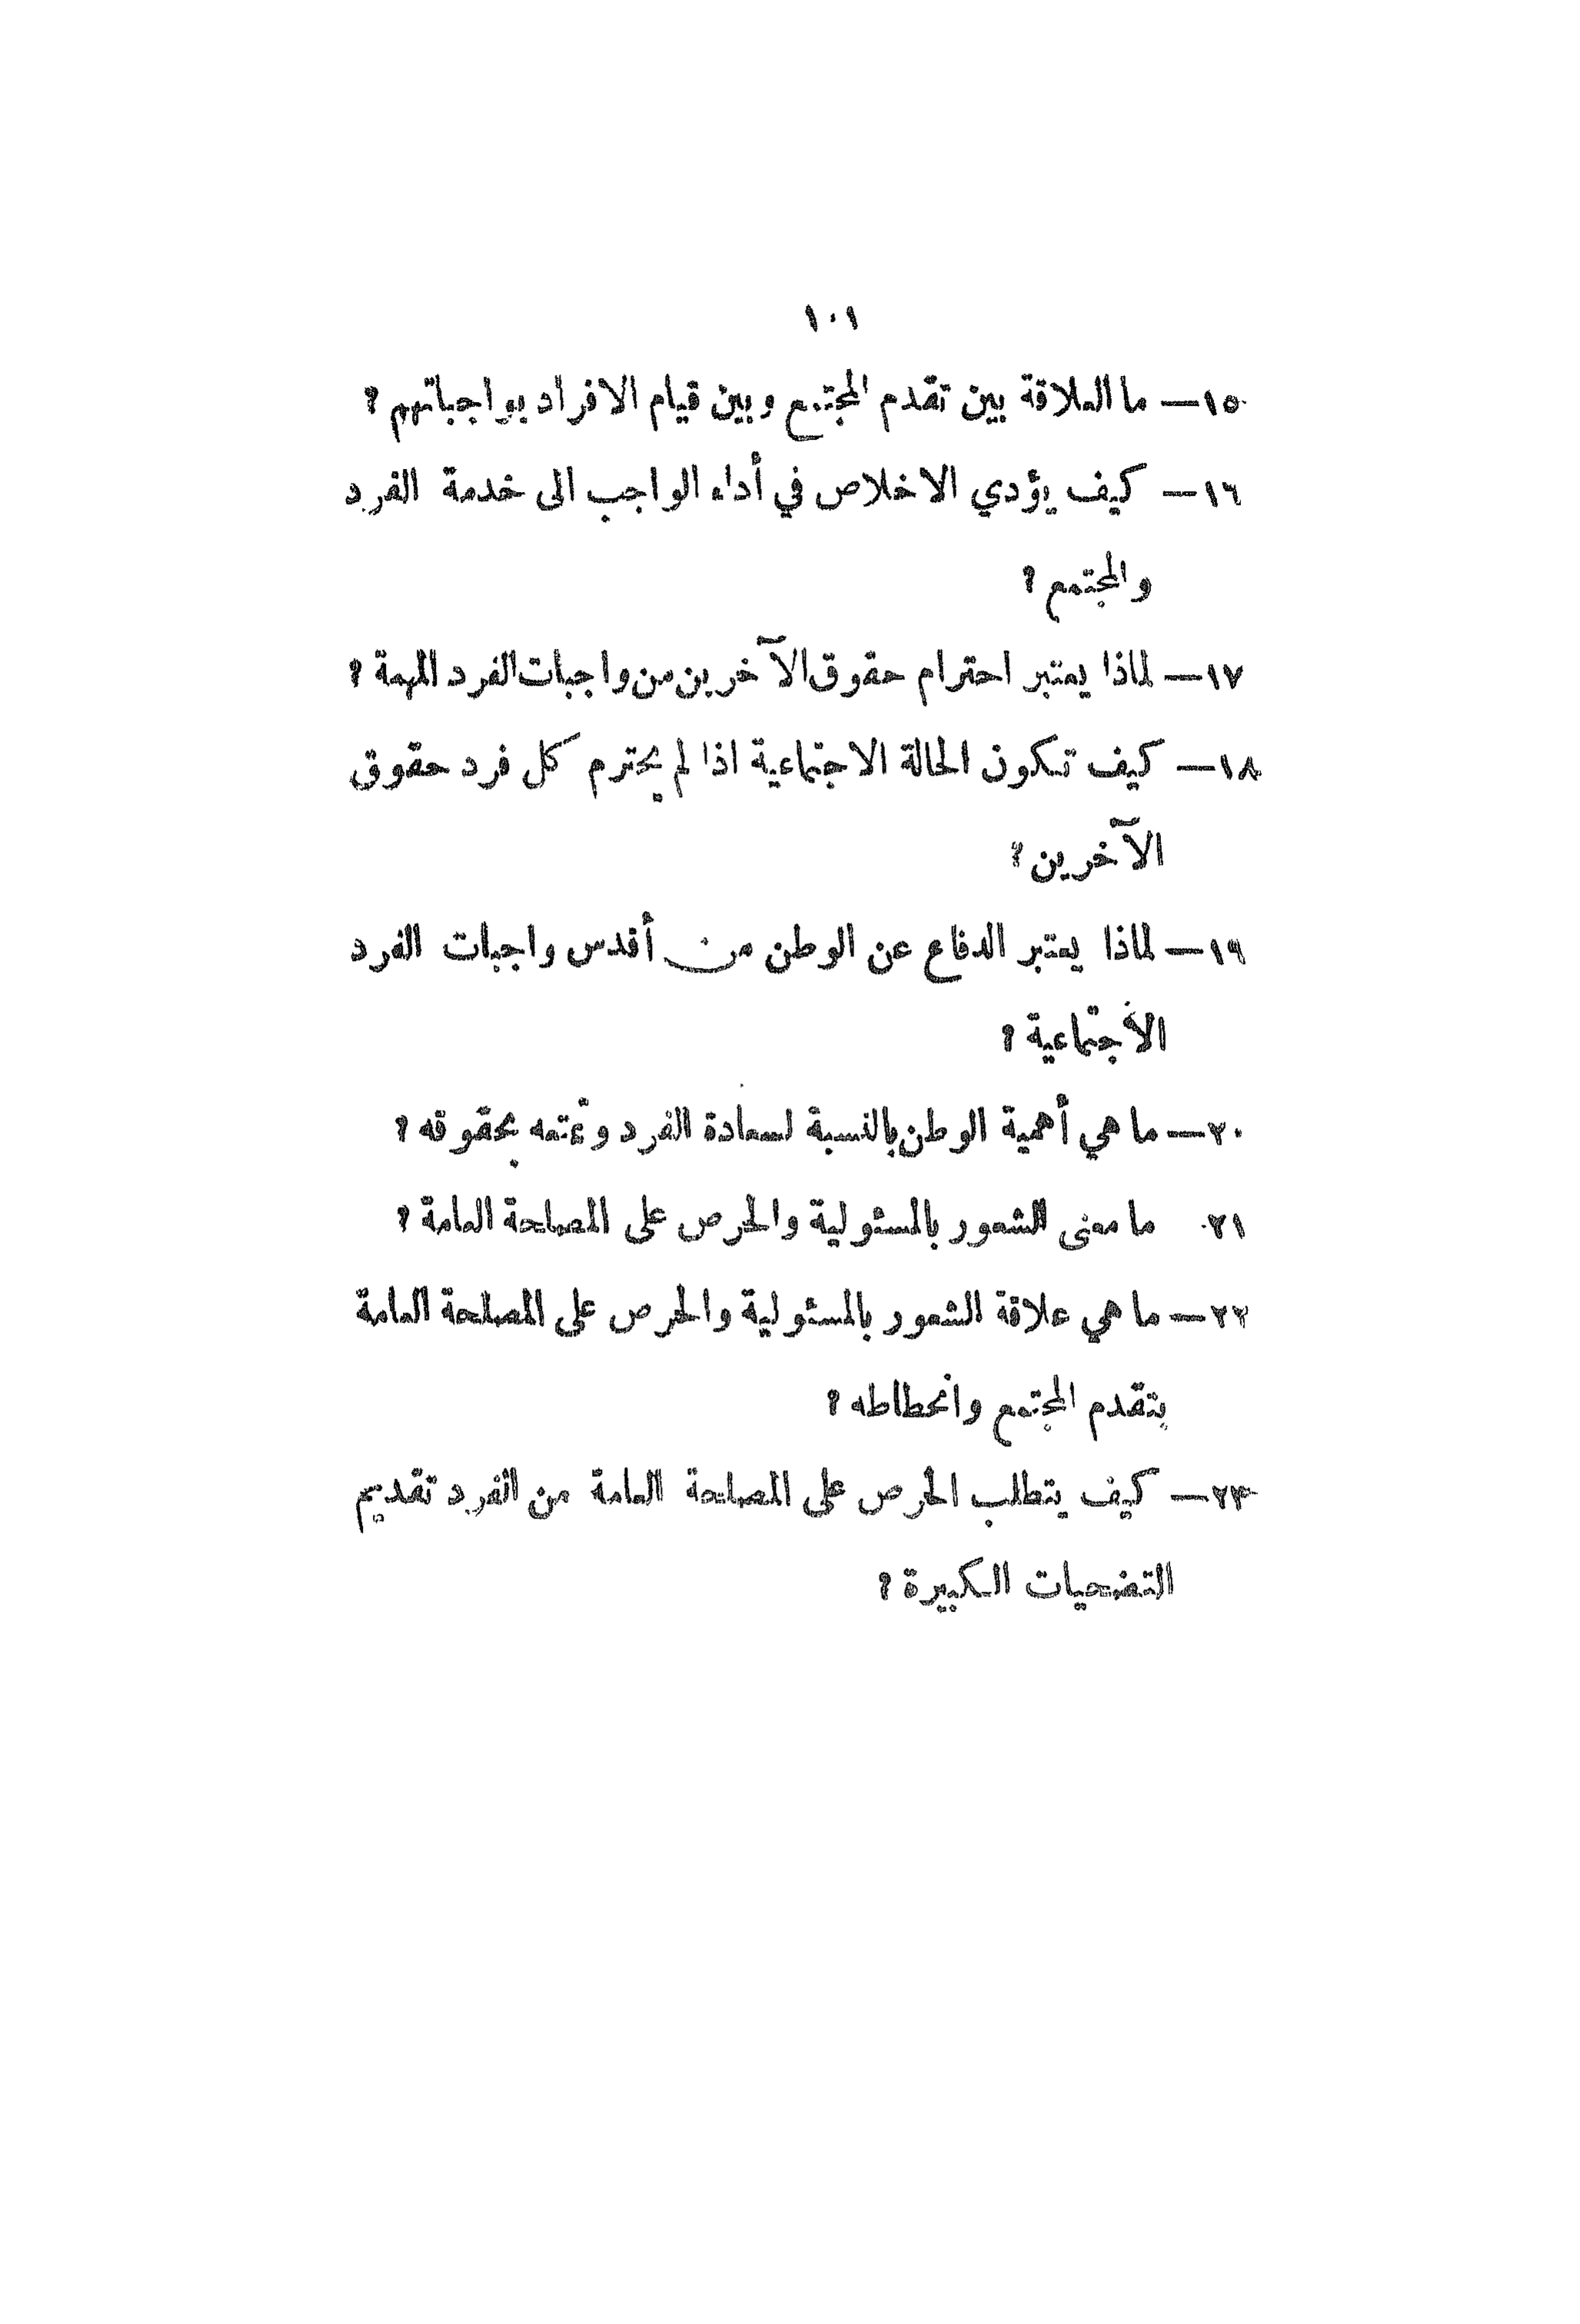 ١٠١
١٥— ما العلاقة بين تقدم المجتمع وبين قيام الافراد بواجباتهم ؟
١٦— كيف يؤدي الاخلاص في أداء الواجب الى خدمة الفرد
والمجتمع ؟
١٧— لماذا يعتبر احترام حقوق الآخرين من واجبات الفرد المهمة ؟
١٨— كيف تكون الحالة الاجتماعية اذا لم يحترم كل فرد حقوق
الآخرين ؟
١٩— لماذا يعتبر الدفاع عن الوطن من أقدس واجبات الفرد
الاجتماعية ؟
٢٠— ما هي أهمية الوطن بالنسبة لسعادة الفرد وتمتعه بحقوقه ؟
٢١ ما معنى الشعور بالمسئولية والحرص على المصلحة العامة ؟
٢٢— ما هي علاقة الشعور بالمسئولية والحرص على المصلحة العامة
بتقدم المجتمع وانحطاطه ؟
٢٣— كيف يتطلب الحرص على المصلحة العامة من الفرد تقديم
التضحيات الكبيرة ؟